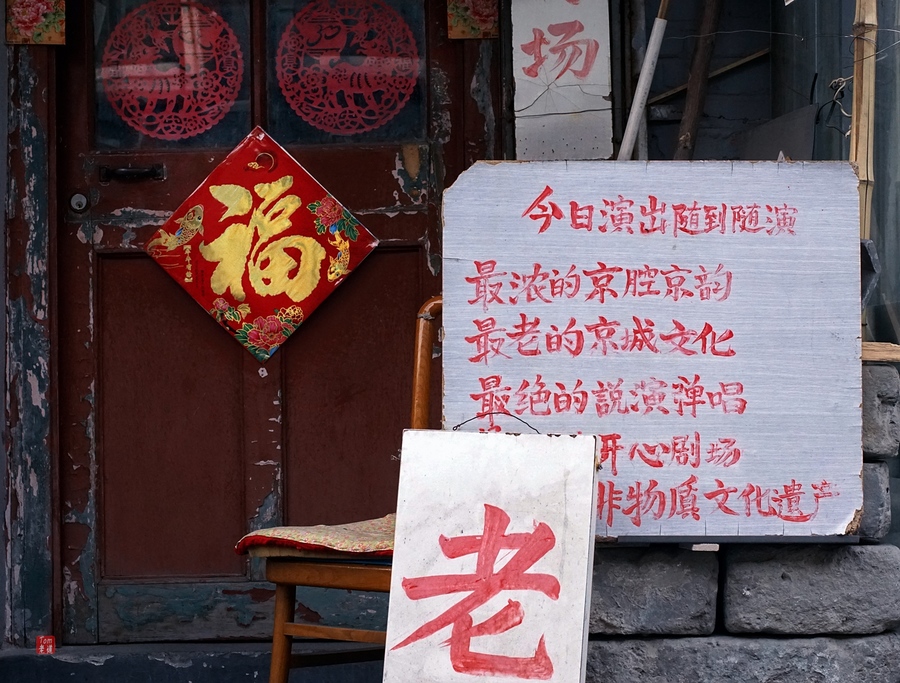 场
福
今日演出随到随演
最浓的京腔京韵
最老的京城文化
最绝的説演弹唱
开心剧场
非物质文化遗产
老
Tom